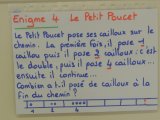 Enigme 4 Le Petit Poucet
Le Petit Poucet pose ses cailloux sur le
chemin. La première fois, il pose 1
caillou puis il pose 2 cailloux : c'est
le double, puis il pose 4 cailloux...
ensuite il continue...
Combien a t.il posé de cailloux à la
fin du chemin ?